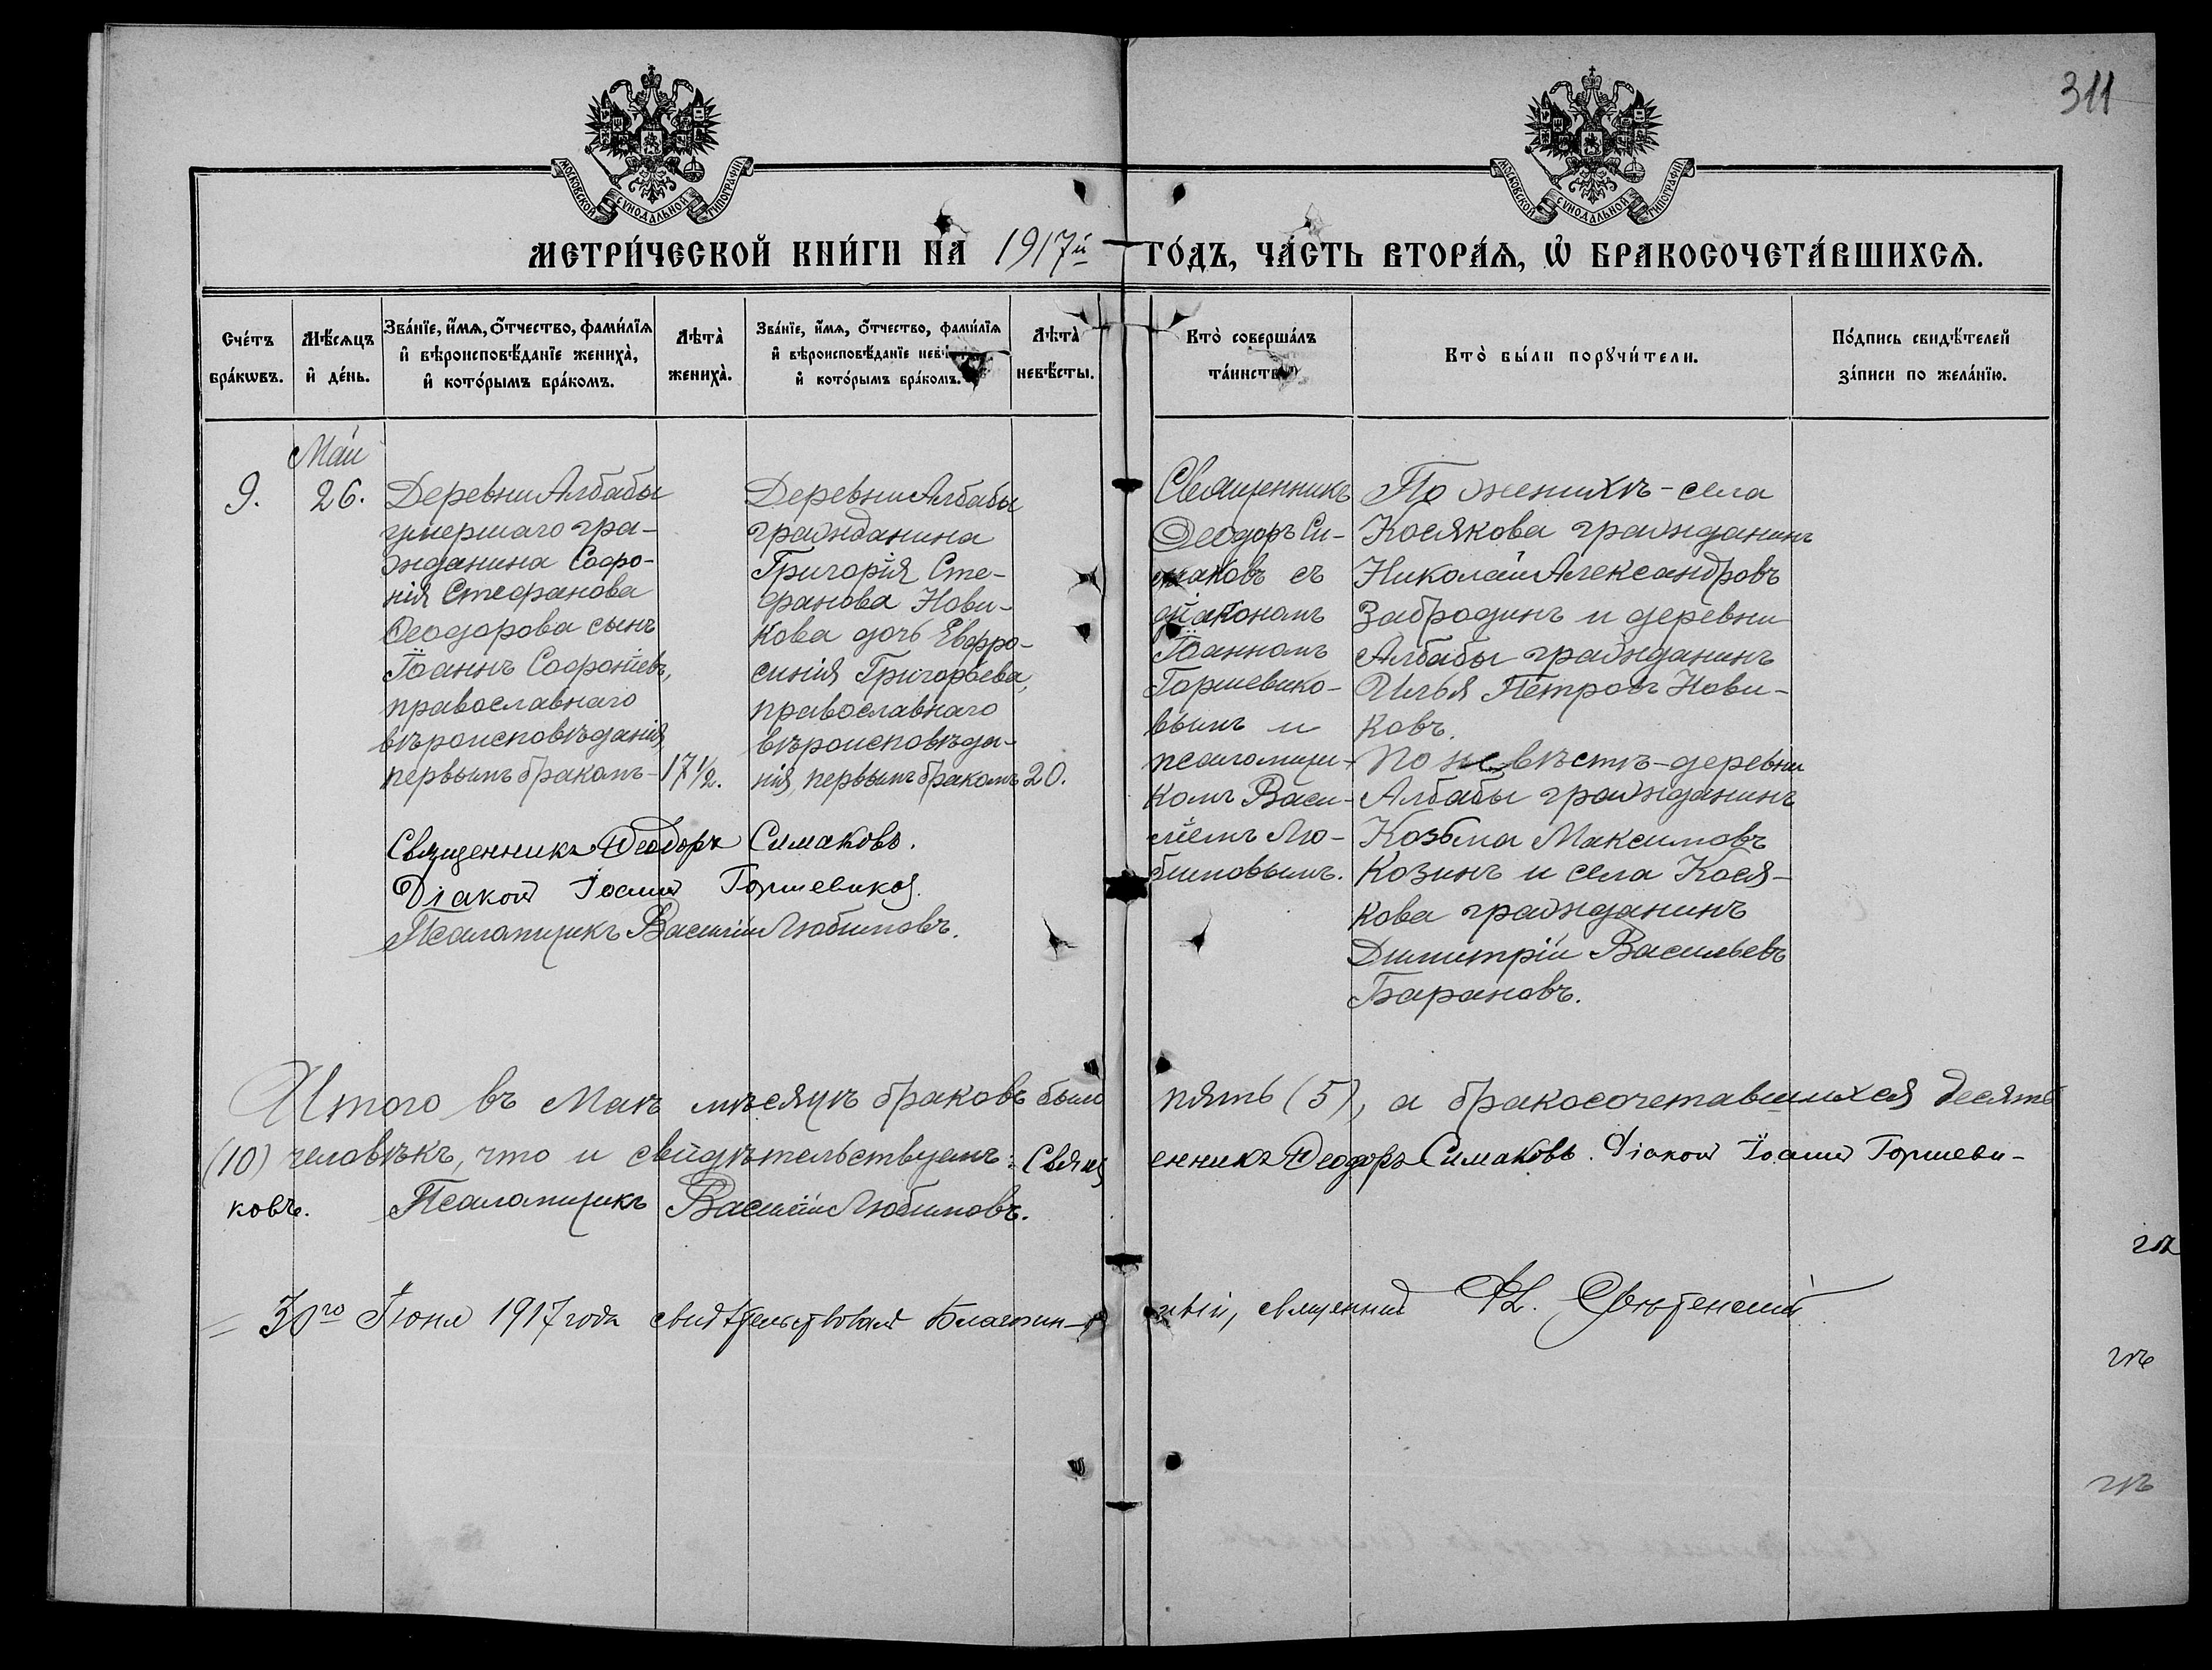 311
МОСКОВСКОЙ СѴНОДАЛЬНОЙ ТИПОГРАФІИ
МОСКОВСКОЙ СѴНОДАЛЬНОЙ ТИПОГРАФІИ
МЕТРИ́ЧЕСКОЙ КНИ́ГИ НА 1917й ГО́ДЪ, ЧА́СТЬ ВТОРА́Ѧ, Ѽ БРАКОСОЧЕТА́ВШИХСѦ.
Сче́тъ
бра́кѡвъ.
Мѣ́сѧцъ
и҆ де́нь.
Зва́нїе, и҆́мѧ, ѻ҆́тчество, фами́лїѧ
и҆ вѣроисповѣ́данїе жениха̀,
и҆ кото́рымъ бра́комъ.
Лѣта̀
жениха̀.
Зва́нїе, и҆́мѧ, ѻ҆́тчество, фами́лїѧ
и҆ вѣроисповѣ́данїе невѣ
и҆ кото́рымъ бра́комъ.
Лѣта̀
невѣ́сты.
Кто̀ соверша́лъ
та́инств
Кто̀ бы́ли порꙋчи́тели.
По́дпись свидѣ́телей
за́писи по жела́нїю.
9.
Май
26.
Деревни Албабы
умершаго гра-
жданина Софро-
нія Стефанова
Ѳеодорова сынъ
Іоаннъ Софроніевъ,
православнаго
вѣроисповѣданія
первымъ бракомъ-
17½.
Деревни Албабы
гражданина
Григорія Сте-
фанова Нови-
кова дочь Евфро-
синія Григорьева,
православнаго
вѣроисповѣда-
нія, первымъ бракомъ
20.
Священникъ
Ѳеодоръ Си-
маковъ съ
діакономъ
Іоанномъ
Горшевико-
вымъ и
псаломщи-
комъ Васи-
ліемъ Лю-
бимовымъ.
По женихѣ-села
Косякова гражданинъ
Николай Александровъ
Забродинъ и деревни
Албабы гражданинъ
Илья Петровъ Нови-
ковъ.
По невѣстѣ-деревни
Албабы гражданинъ
Козьма Максимовъ
Козинъ и села Кося-
кова гражданинъ
Димитрій Васильевъ
Барановъ.
Священникъ Ѳеодоръ Симаковъ.
Діаконъ Іоаннъ Горшевиковъ.
Псаломщикъ Василій Любимовъ.
Итого въ Маѣ мѣсяцѣ браковъ было пять (5), а бракосочетавшихся десять
(10) человѣкъ, что и свидѣтельствуемъ: Священникъ Ѳеодоръ Симаковъ. Діаконъ Іоаннъ Горшеви-
ковъ. Псаломщикъ Василій Любимовъ.
= 30го Іюня 1917 года свидѣтельствовалъ Благочин-ный, священникъ